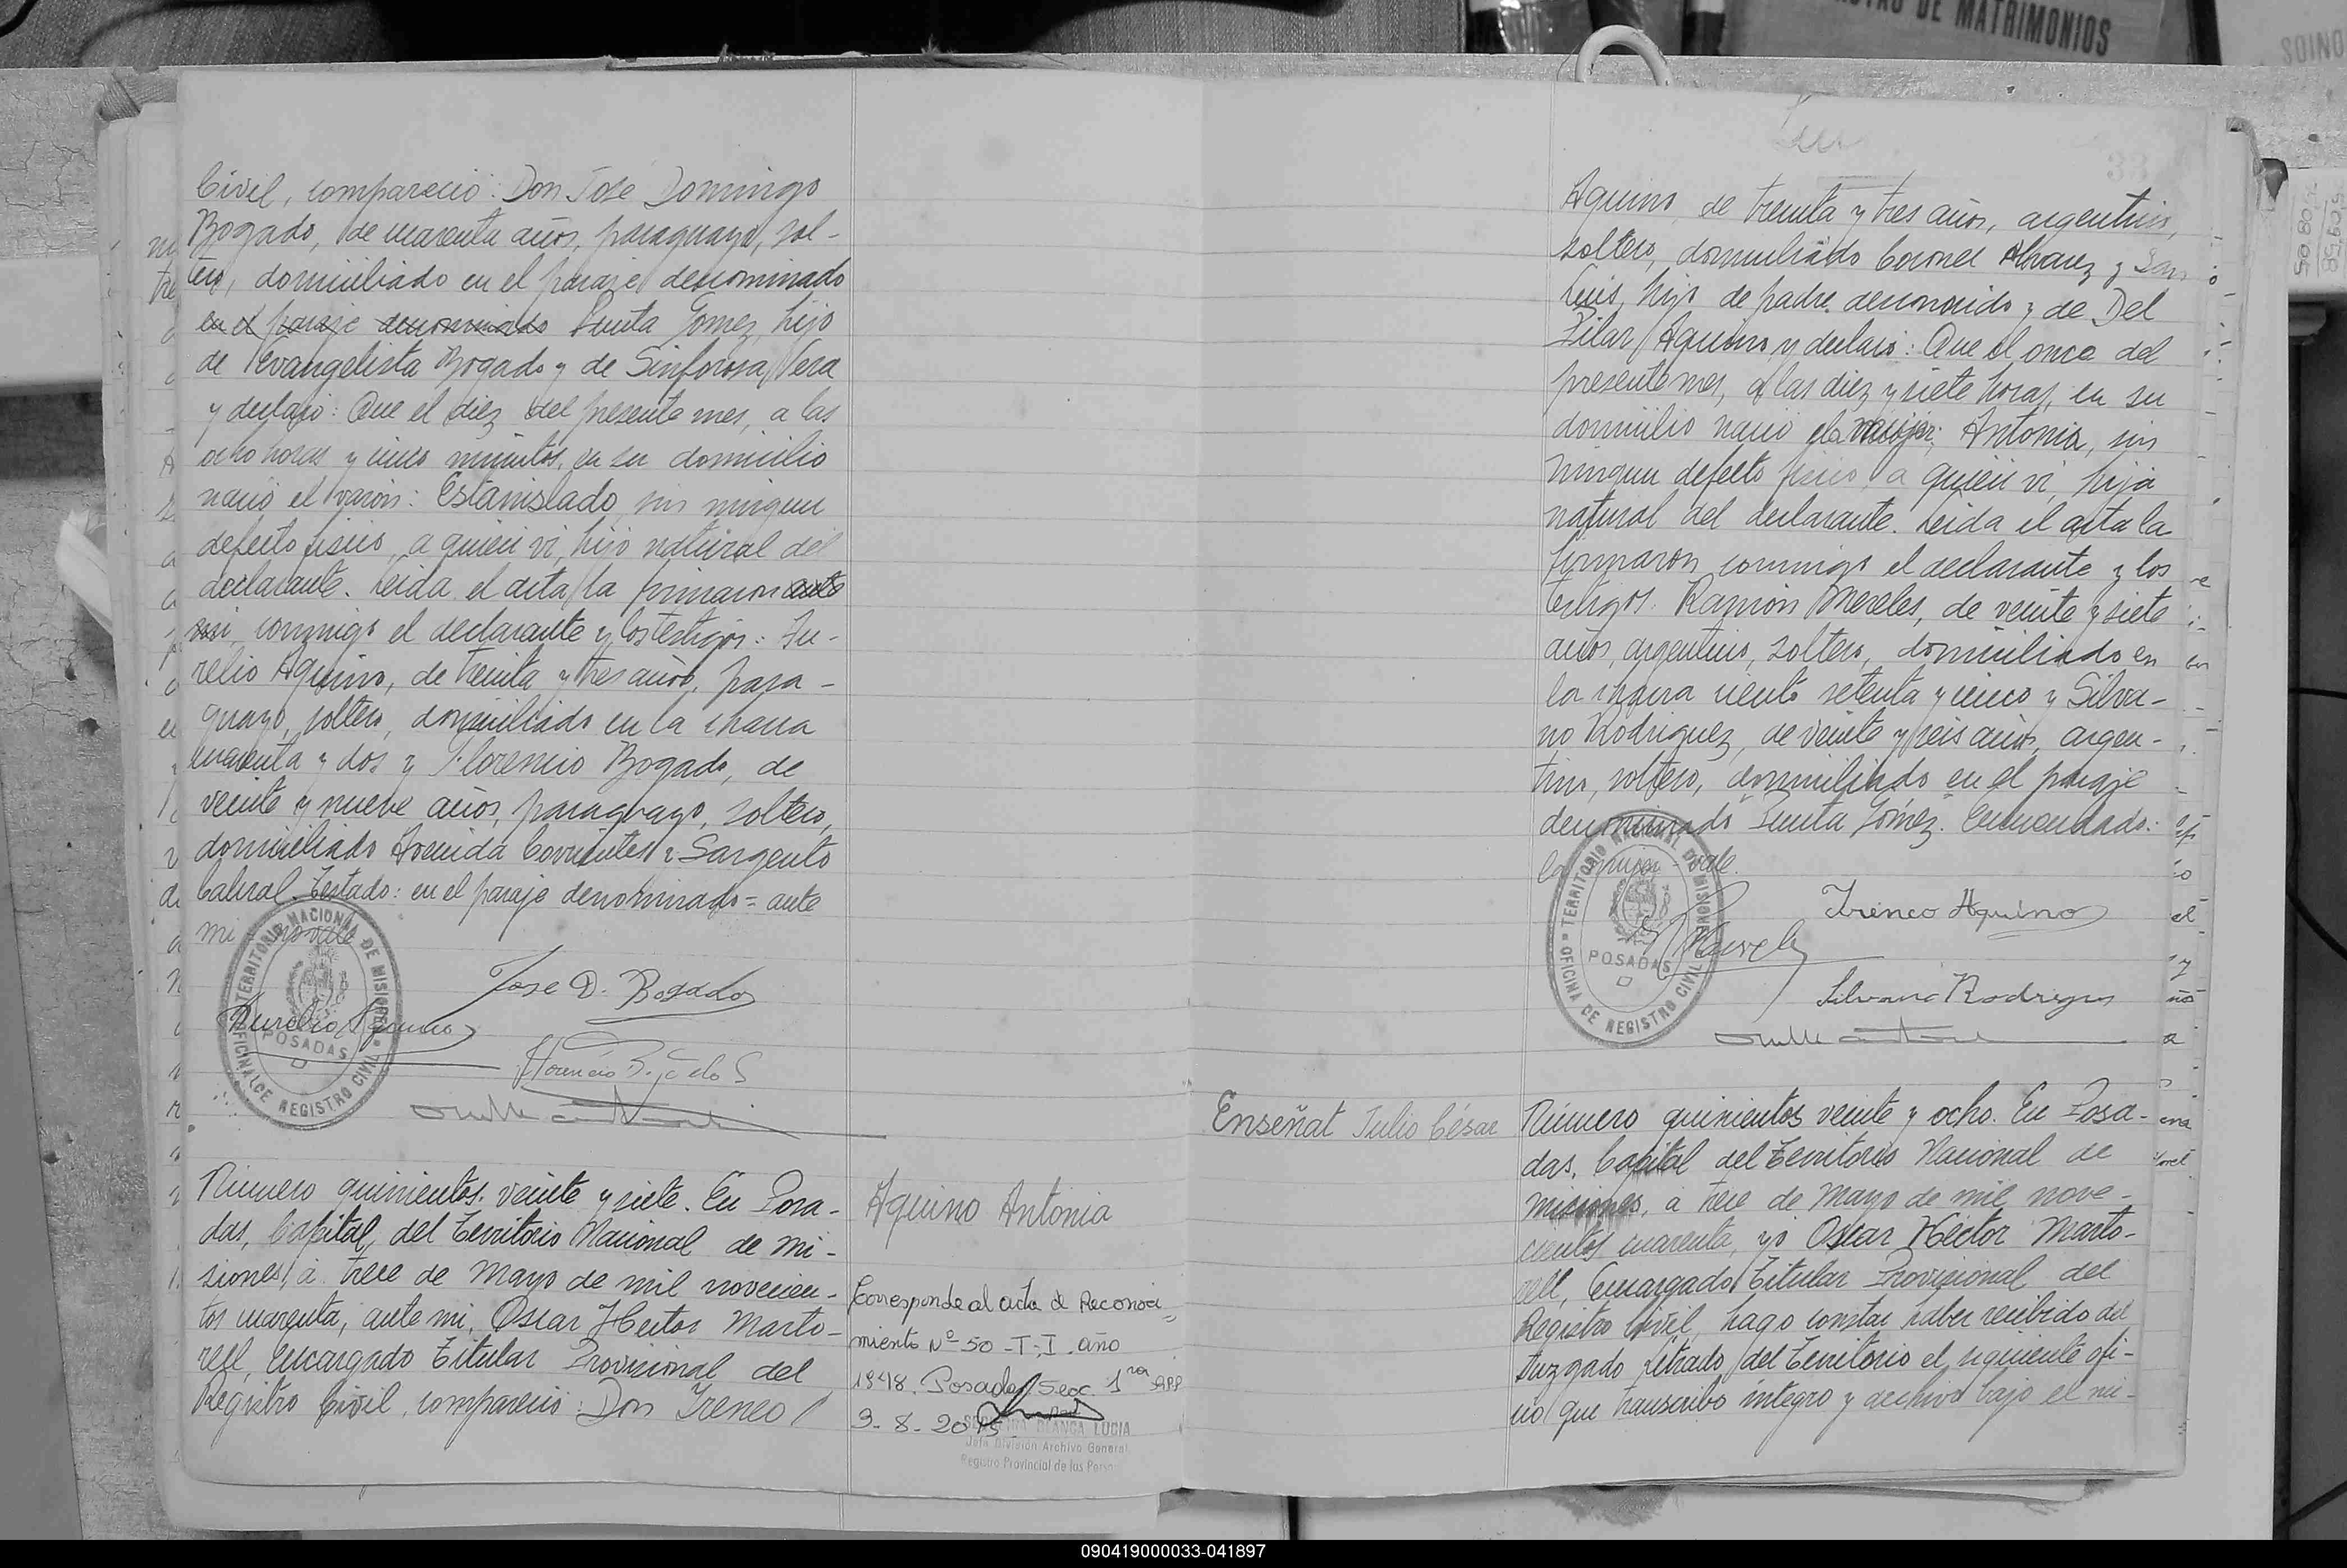 DE MATRIMONIOS
Civil, compareció: Don José Domingo
Bogado, de cuarenta años, paraguayo, sol-
tero, domiciliado en el paraje denominado
en el paraje denominado Punta Gomez, hijo
de Evangelista Bogado y de Sinforosa Vera
y declaró: Que el diez del presente mes, a las
ocho horas y cinco minutos, en su domicilio
nació el varón: Estanislado, sin ningun
defecto fisico, a quien vi, hijo natural del
declarante. Leida el acta la firmaron ante
mi conmigo el declarante y los testigos: Au-
relio Aquino, de treinta y tres años, para-
guayo, soltero, domiciliado en la chacra
cuarenta y dos y Florencio Bogado, de
veinte y nueve años, paraguayo, soltero,
domiciliado Avenida Corrientes y Sargento
Cabral. Testado: en el paraje denominado = ante
mi no vale
Jose D. Bogado
Aurelio Aquino
TERRITORIO NACIONAL DE MISIONES
POSADAS
OFICINA DE REGISTRO CIVIL
Número quinientos veinte y siete. En Posa-
das, Capital del Territorio Nacional de Mi-
siones, a trece de Mayo de mil novecien-
tos cuarenta, ante mi, Oscar Hector Marto-
rell, Encargado Titular Provisional del
Registro Civil, compareció: Don Ireneo
Aquino Antonia
Corresponde al acta de Reconoci=
miento Nº 50 - T. I. año
1948. Posadas Secc. 1ra
9-8-2015
BLANCA LUCIA
Jefa División Archivo General
Registro Provincial de las Perso
33
Aquino, de treinta y tres años, argentino,
soltero, domiciliado Coronel Alvarez y San
Luis, hijo de padre desconocido y de Del
Pilar Aquino y declaró: Que el once del
presente mes, a las diez y siete horas, en su
domicilio nació la mujer: Antonia, sin
ningun defecto fisico, a quien vi, hija
natural del declarante. Leida el acta la
firmaron conmigo el declarante y los
testigos: Ramón Mereles, de veinte y siete
años, argentino, soltero, domiciliado en
la chacra ciento setenta y cinco y Silva-
no Rodriguez, de veinte y seis años, argen-
tino, soltero, domiciliado en el paraje
denominado Punta Gómez. Enmendado:
la mujer - vale.
Ireneo Aquino
Silvano Rodrigues
TERRITORIO NACIONAL DE MISIONES
POSADAS
OFICINA DE REGISTRO CIVIL
Enseñat Julio César
Número quinientos veinte y ocho. En Posa-
das, Capital del Territorio Nacional de
Misiones, a trece de Mayo de mil nove-
cientos cuarenta, yo Oscar Héctor Marto-
rell, Encargado Titular Provisional del
Registro Civil, hago constar haber recibido del
Juzgado Letrado del Territorio el siguiente ofi-
cio que transcribo íntegro y archivo bajo el nú-
090419000033-041897